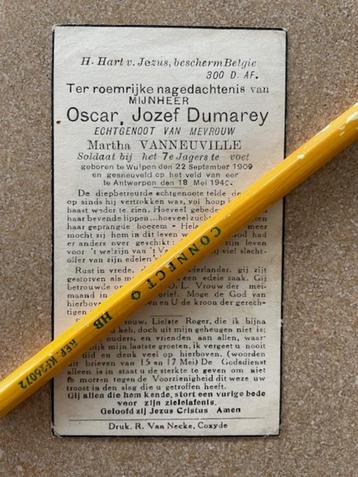 H. Hart v. Jezus, bescherm Belgie
300 D. AF.
Ter roemrijke nagedachtenis van
MIJNHEER
Oscar, Jozef Dumarey
ECHTGENOOT VAN MEVROUW
Martha VANNEUVILLE
Soldaat bij het 7e Jagers te voet
geboren te Wulpen den 22 September 1909
en gesneuveld op het veld van eer
te Antwerpen den 18 Mei 1940.
De diepbetreurde echtgenoote telde de
op sinds hij vertrokken was, vol hoop
haast weder te zien. Hoeveel gebede
haar bevende lippen
haar geprangde boezem
meer mocht zij hem
hem in dit leven
voor 't welzijn van 't V
van zijn edelen
Rust in vrede, derlander. gij zijt
gestorven als edele zaak. Gij
betrouwde op O. L. Vrouw der
. Moge de God van
hierboven, U de kroon der
gerechtigen
rouw, Lielste Roger, die ik bijna
keb, doch uit mijn geheugen niet is;
ouders, en vrienden aan allen, waar
mijn laatste groeten, ik vergeten u nooit
deel op hierboven. (woorden
uit brieven van 15 en 17 Mei) De Godsdienst
alleen is in staat u de sterkte te geven om niet
te morren tegen de Voorzienigheid dit weze uw
troost in den slag die u getroffen heeft.
Gij allen die hem kende, stort een vurige bede
voor zijn zielelafenis.
Geloofd zij Jezus Cristus Amen
Druk. R. Van Necke, Coxyde
CONNECT O HB
REF. KF16072